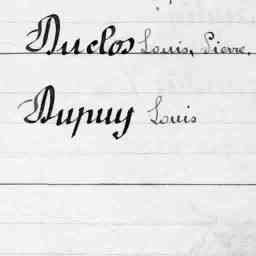 Duclos Louis, Pierre.
Dupuy Louis